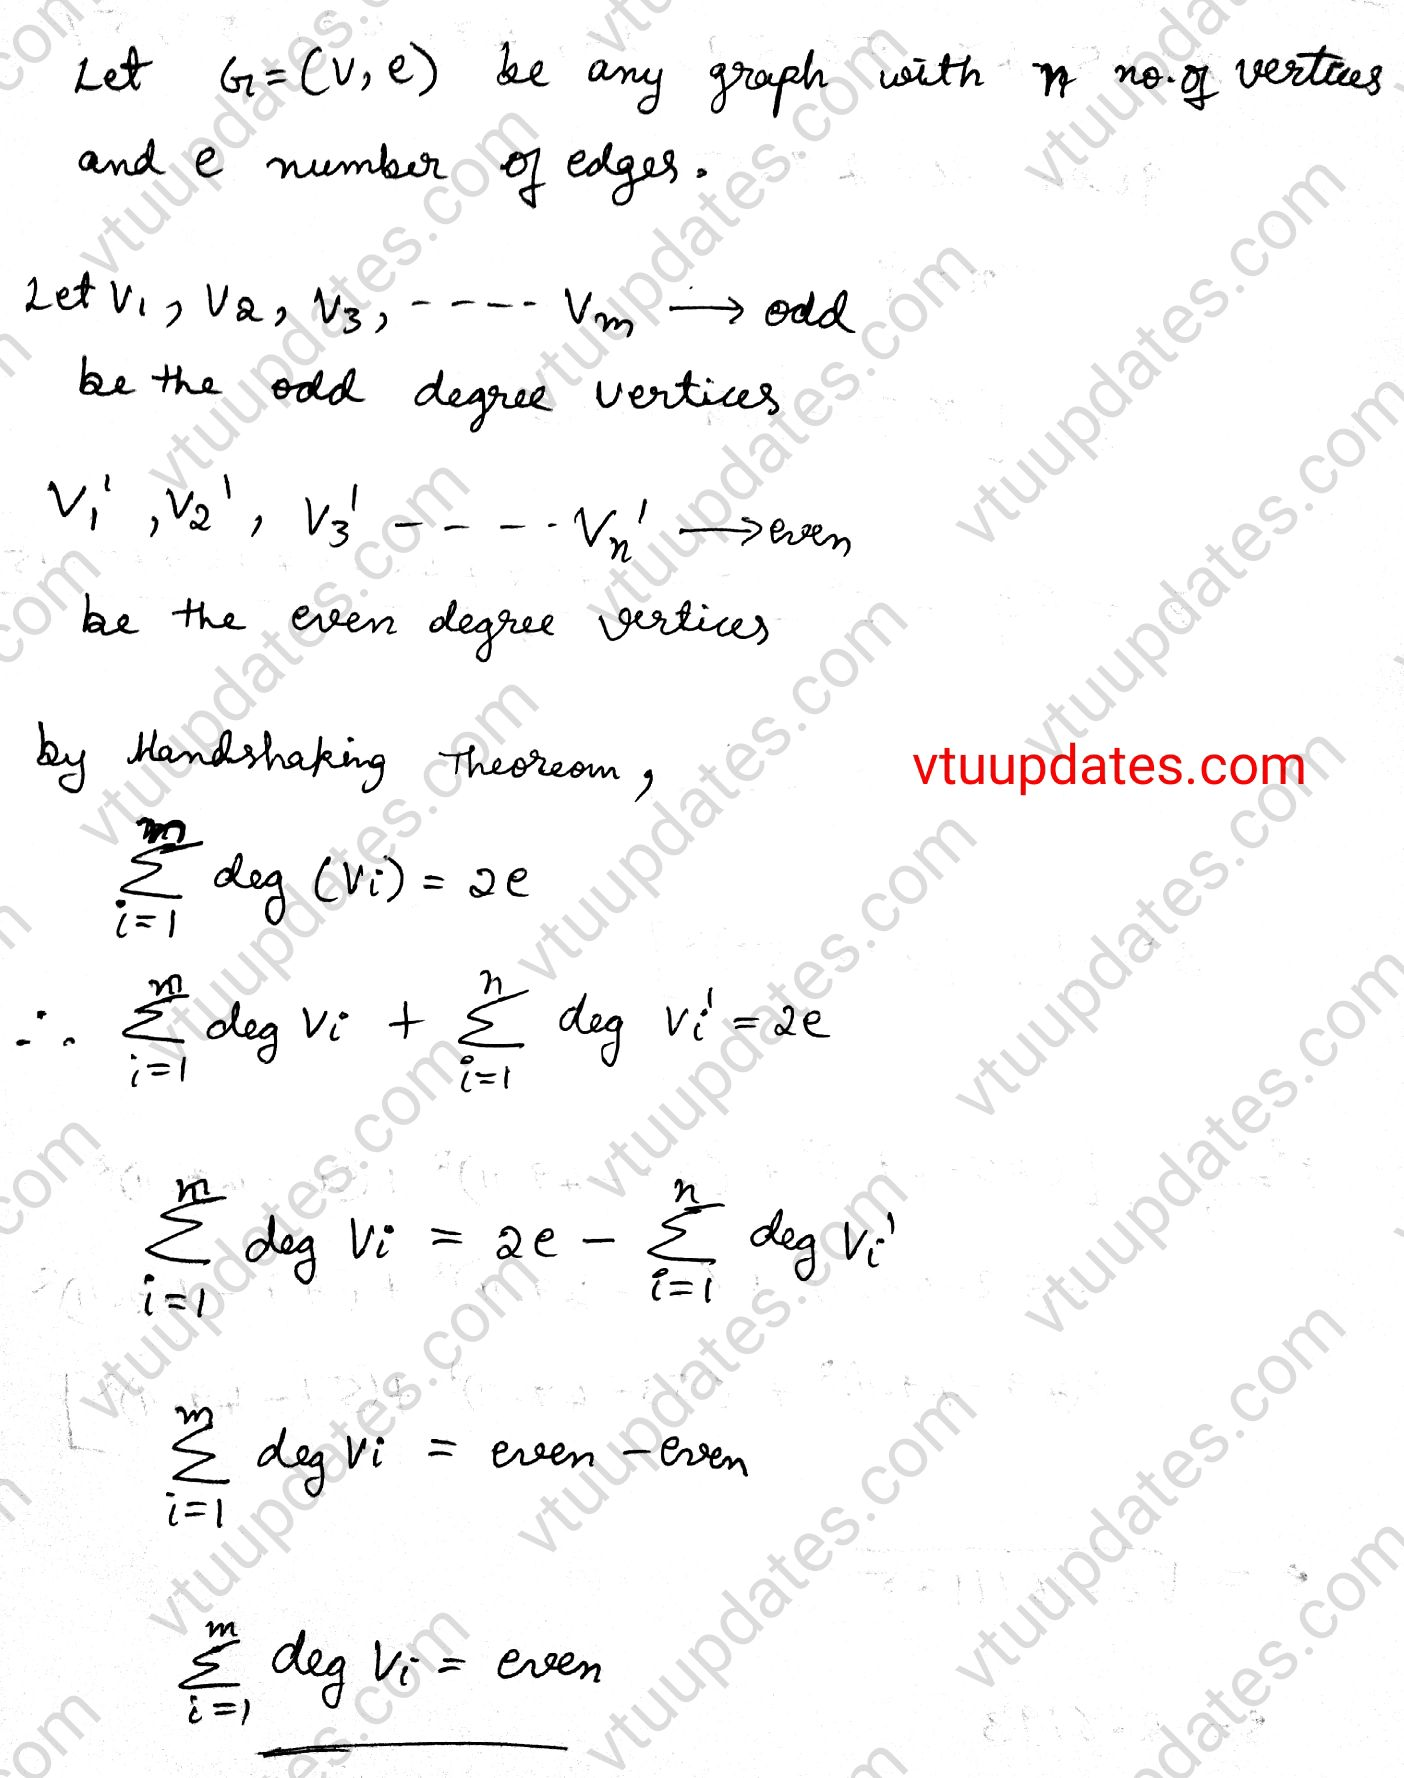 Let G=(V, e) be any graph with n no. of vertices
and e number of edges.
Let V₁, V₂, V₃, ---- Vₘ → odd
be the odd degree vertices
V₁', V₂', V₃' ----- Vₙ' → even
be the even degree vertices
by Handshaking Theoreom,
vtuupdates.com
∑ᵢ₌₁ᵐ deg (Vi) = 2e
∴ ∑ᵢ₌₁ᵐ deg Vi + ∑ᵢ₌₁ⁿ deg Vi' = 2e
∑ᵢ₌₁ᵐ deg Vi = 2e - ∑ᵢ₌₁ⁿ deg Vi'
∑ᵢ₌₁ᵐ deg Vi = even - even
∑ᵢ₌₁ᵐ deg Vi = even